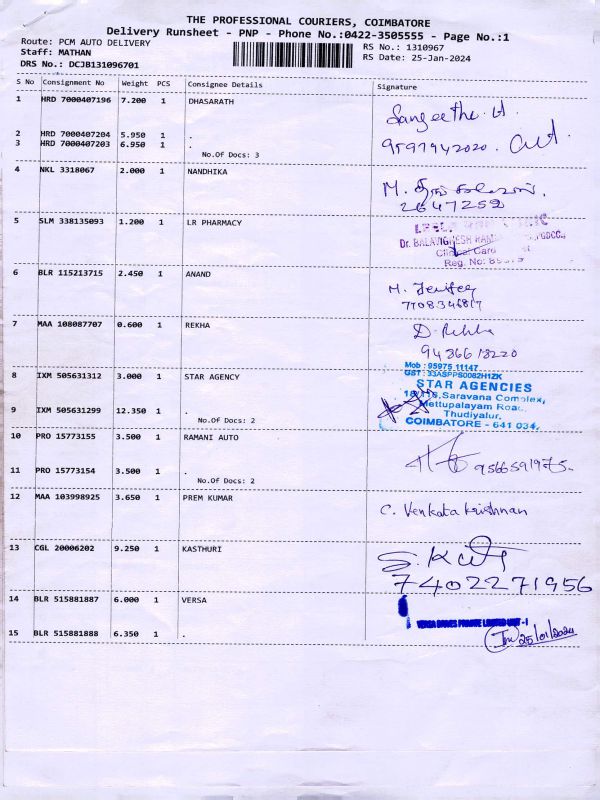 THE PROFESSIONAL COURIERS, COIMBATORE
Delivery Runsheet - PNP - Phone No.:0422-3505555 - Page No.:1
Route: PCM AUTO DELIVERY
RS No.: 1310967
Staff: MATHAN
RS Date: 25-Jan-2024
DRS No.: DCJB131096701
S No Consignment No Weight PCS Consignee Details Signature
1 HRD 7000407196 7.200 1 DHASARATH
Sangeetha. A
2 HRD 7000407204 5.950 1 .
3 HRD 7000407203 6.950 1 .
9597942020.
No.Of Docs: 3
4 NKL 3318067 2.000 1 NANDHIKA
M.
2647252
5 SLM 338135093 1.200 1 LR PHARMACY
Dr. BALAVIGNESH
Reg. No:
6 BLR 115213715 2.450 1 ANAND
M.
7708346817
7 MAA 108087707 0.600 1 REKHA
D. Rekha
9436618220
8 IXM 505631312 3.000 1 STAR AGENCY
Mob : 95975 11147
GST : 33ASPPS0082H1ZK
STAR AGENCIES
Saravana Complex,
Mettupalayam Road,
Thudiyalur,
COIMBATORE - 641 034.
9 IXM 505631299 12.350 1 .
No.Of Docs: 2
10 PRO 15773155 3.500 1 RAMANI AUTO
9566591975.
11 PRO 15773154 3.500 1 .
No.Of Docs: 2
12 MAA 103998925 3.650 1 PREM KUMAR
C. Venkata krishnan
13 CGL 20006202 9.250 1 KASTHURI
7402271956
14 BLR 515881887 6.000 1 VERSA
VERSA DRIVES PRIVATE LIMITED UNIT - I
25/01/2024
15 BLR 515881888 6.350 1 .